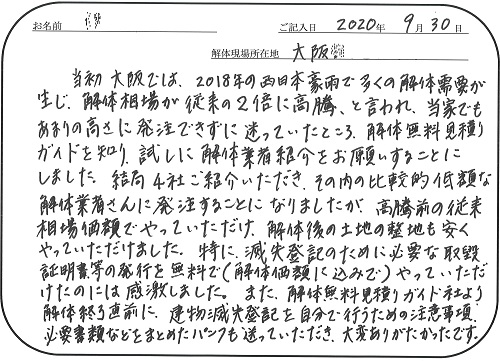 お名前 ご記入日 2020年 9月 30日
解体現場所在地 大阪
当初 大阪では、2018年の西日本豪雨で多くの解体需要が
生じ、解体相場が従来の2倍に高騰、と言われ、当家でも
あまりの高さに発注できずに迷っていたところ、解体無料見積り
ガイドを知り、試しに解体業者紹介をお願いすることに
しました。結局4社ご紹介いただき、その内の比較的低額な
解体業者さんに発注することになりましたが、高騰前の従来
相場価額でやっていただけ、解体後の土地の整地も安く
やっていただけました。特に、滅失登記のために必要な取毀
証明書等の発行を無料で(解体価額に込みで)やっていただ
けたのには感激しました。また、解体無料見積りガイド社より
解体終了直前に、建物滅失登記を自分で行うための注意事項、
必要書類などをまとめたパンフも送っていただき、大変ありがたかったです。